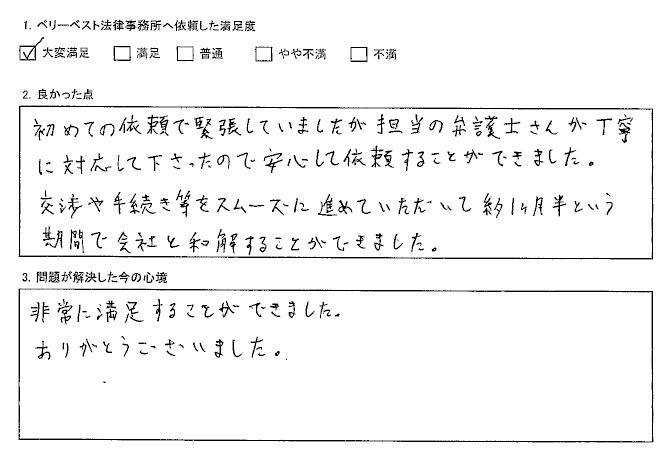 1. ベリーベスト法律事務所へ依頼した満足度
☑ 大変満足 □ 満足 □ 普通 □ やや不満 □ 不満
2. 良かった点
初めての依頼で緊張していましたが担当の弁護士さんが丁寧
に対応して下さったので安心して依頼することができました。
交渉や手続き等をスムーズに進めていただいて約1ヶ月半という
期間で会社と和解することができました。
3. 問題が解決した今の心境
非常に満足することができました。
ありがとうございました。